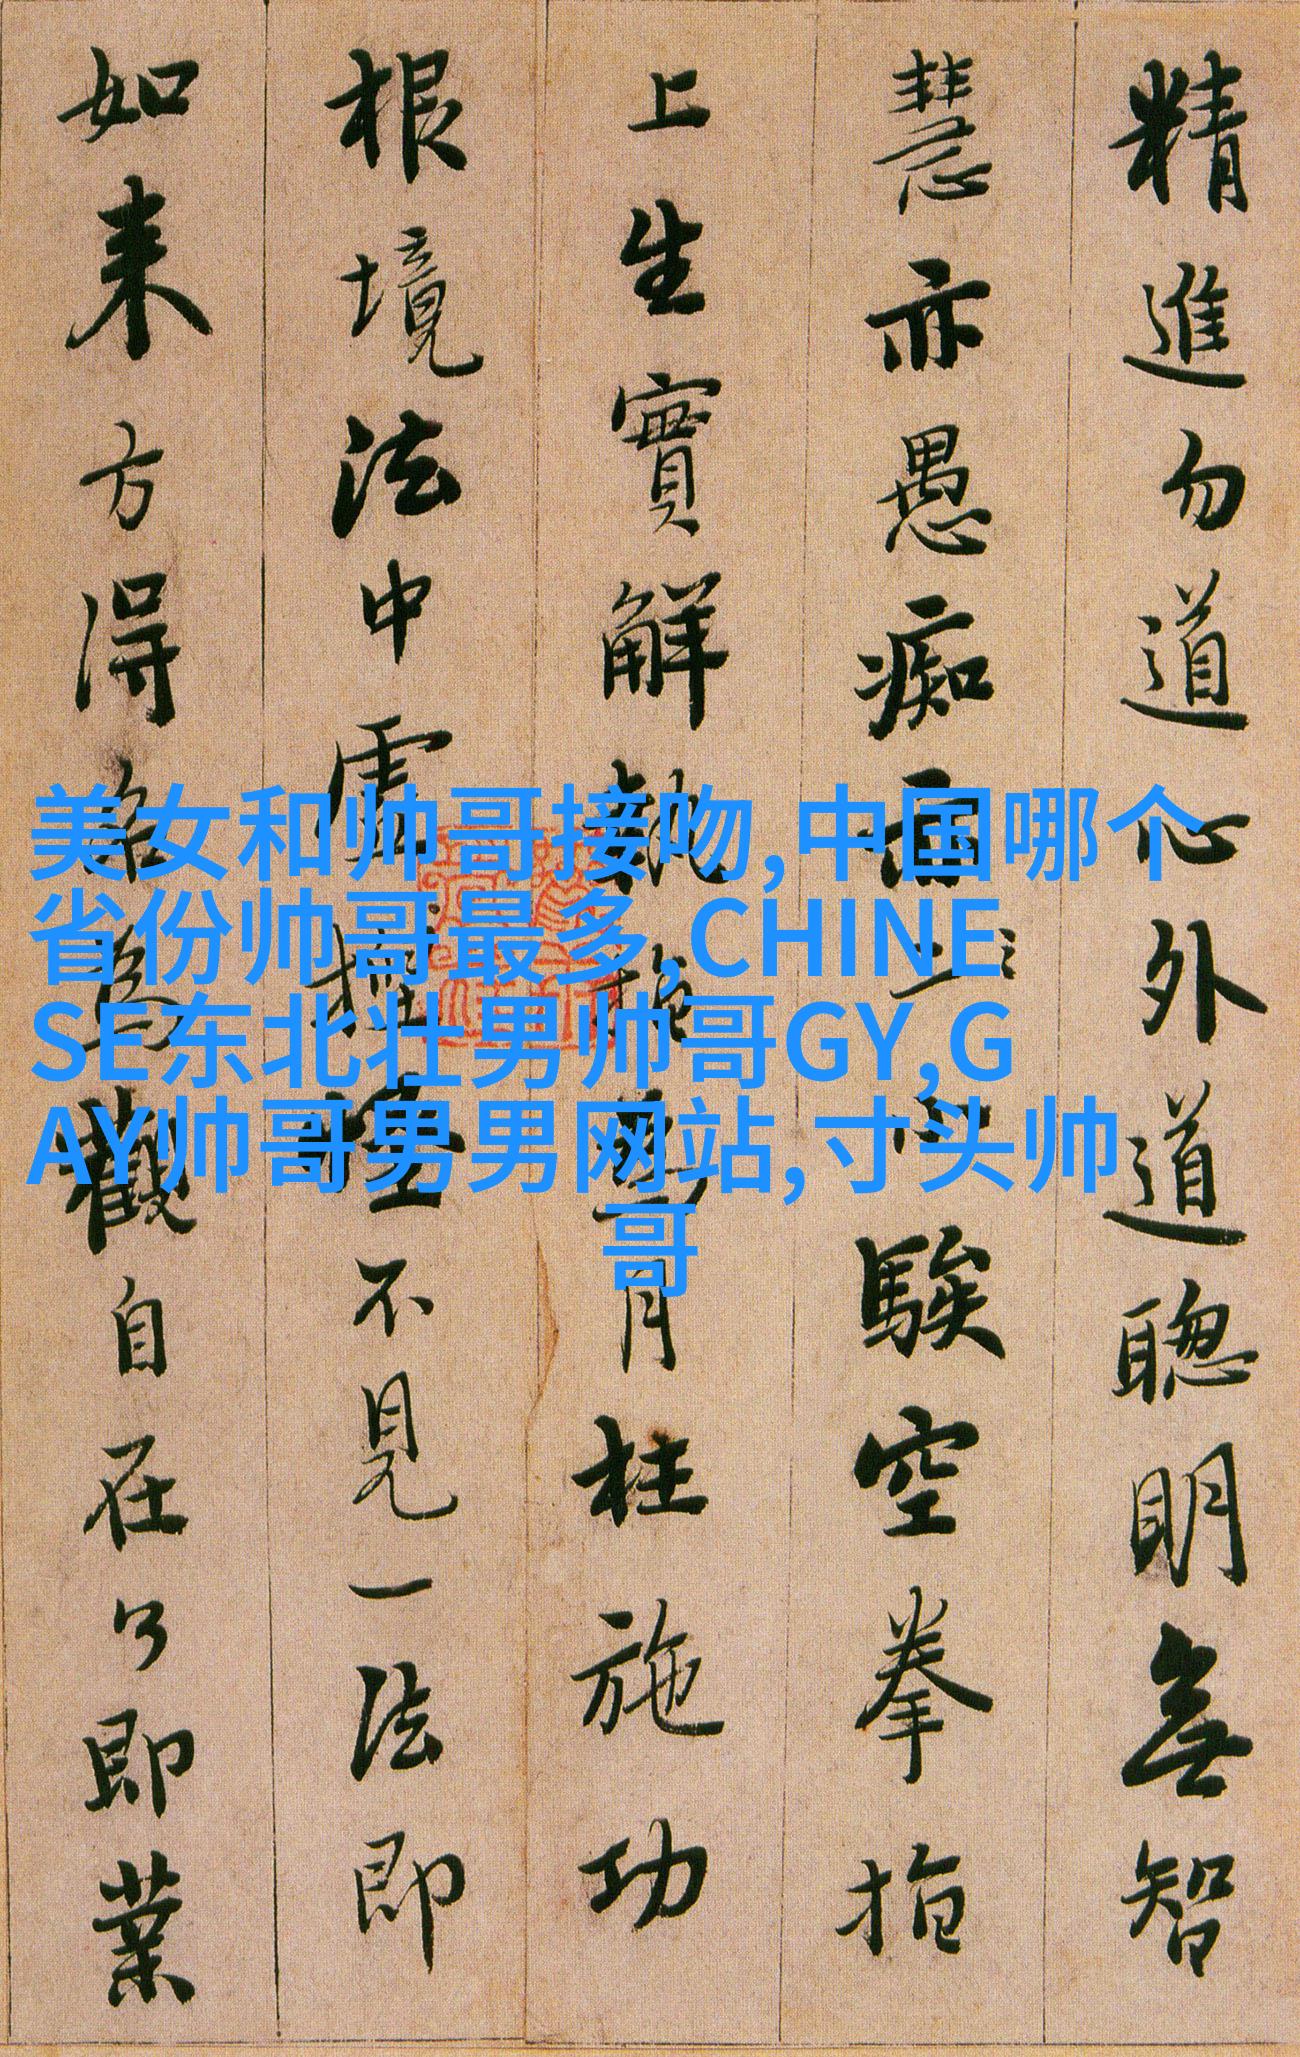 精進勿道心外道聰明無智
慧亦愚癡愚癡小騃空拳指
上生實解執指為月枉施功
根境法中虛捏怪不見一法即
如来方得名為觀自在了即業
美女和帅哥接吻,中国哪个
省份帅哥最多,CHINE
SE东北壮男帅哥GY,G
AY帅哥男男网站,寸头帅
哥